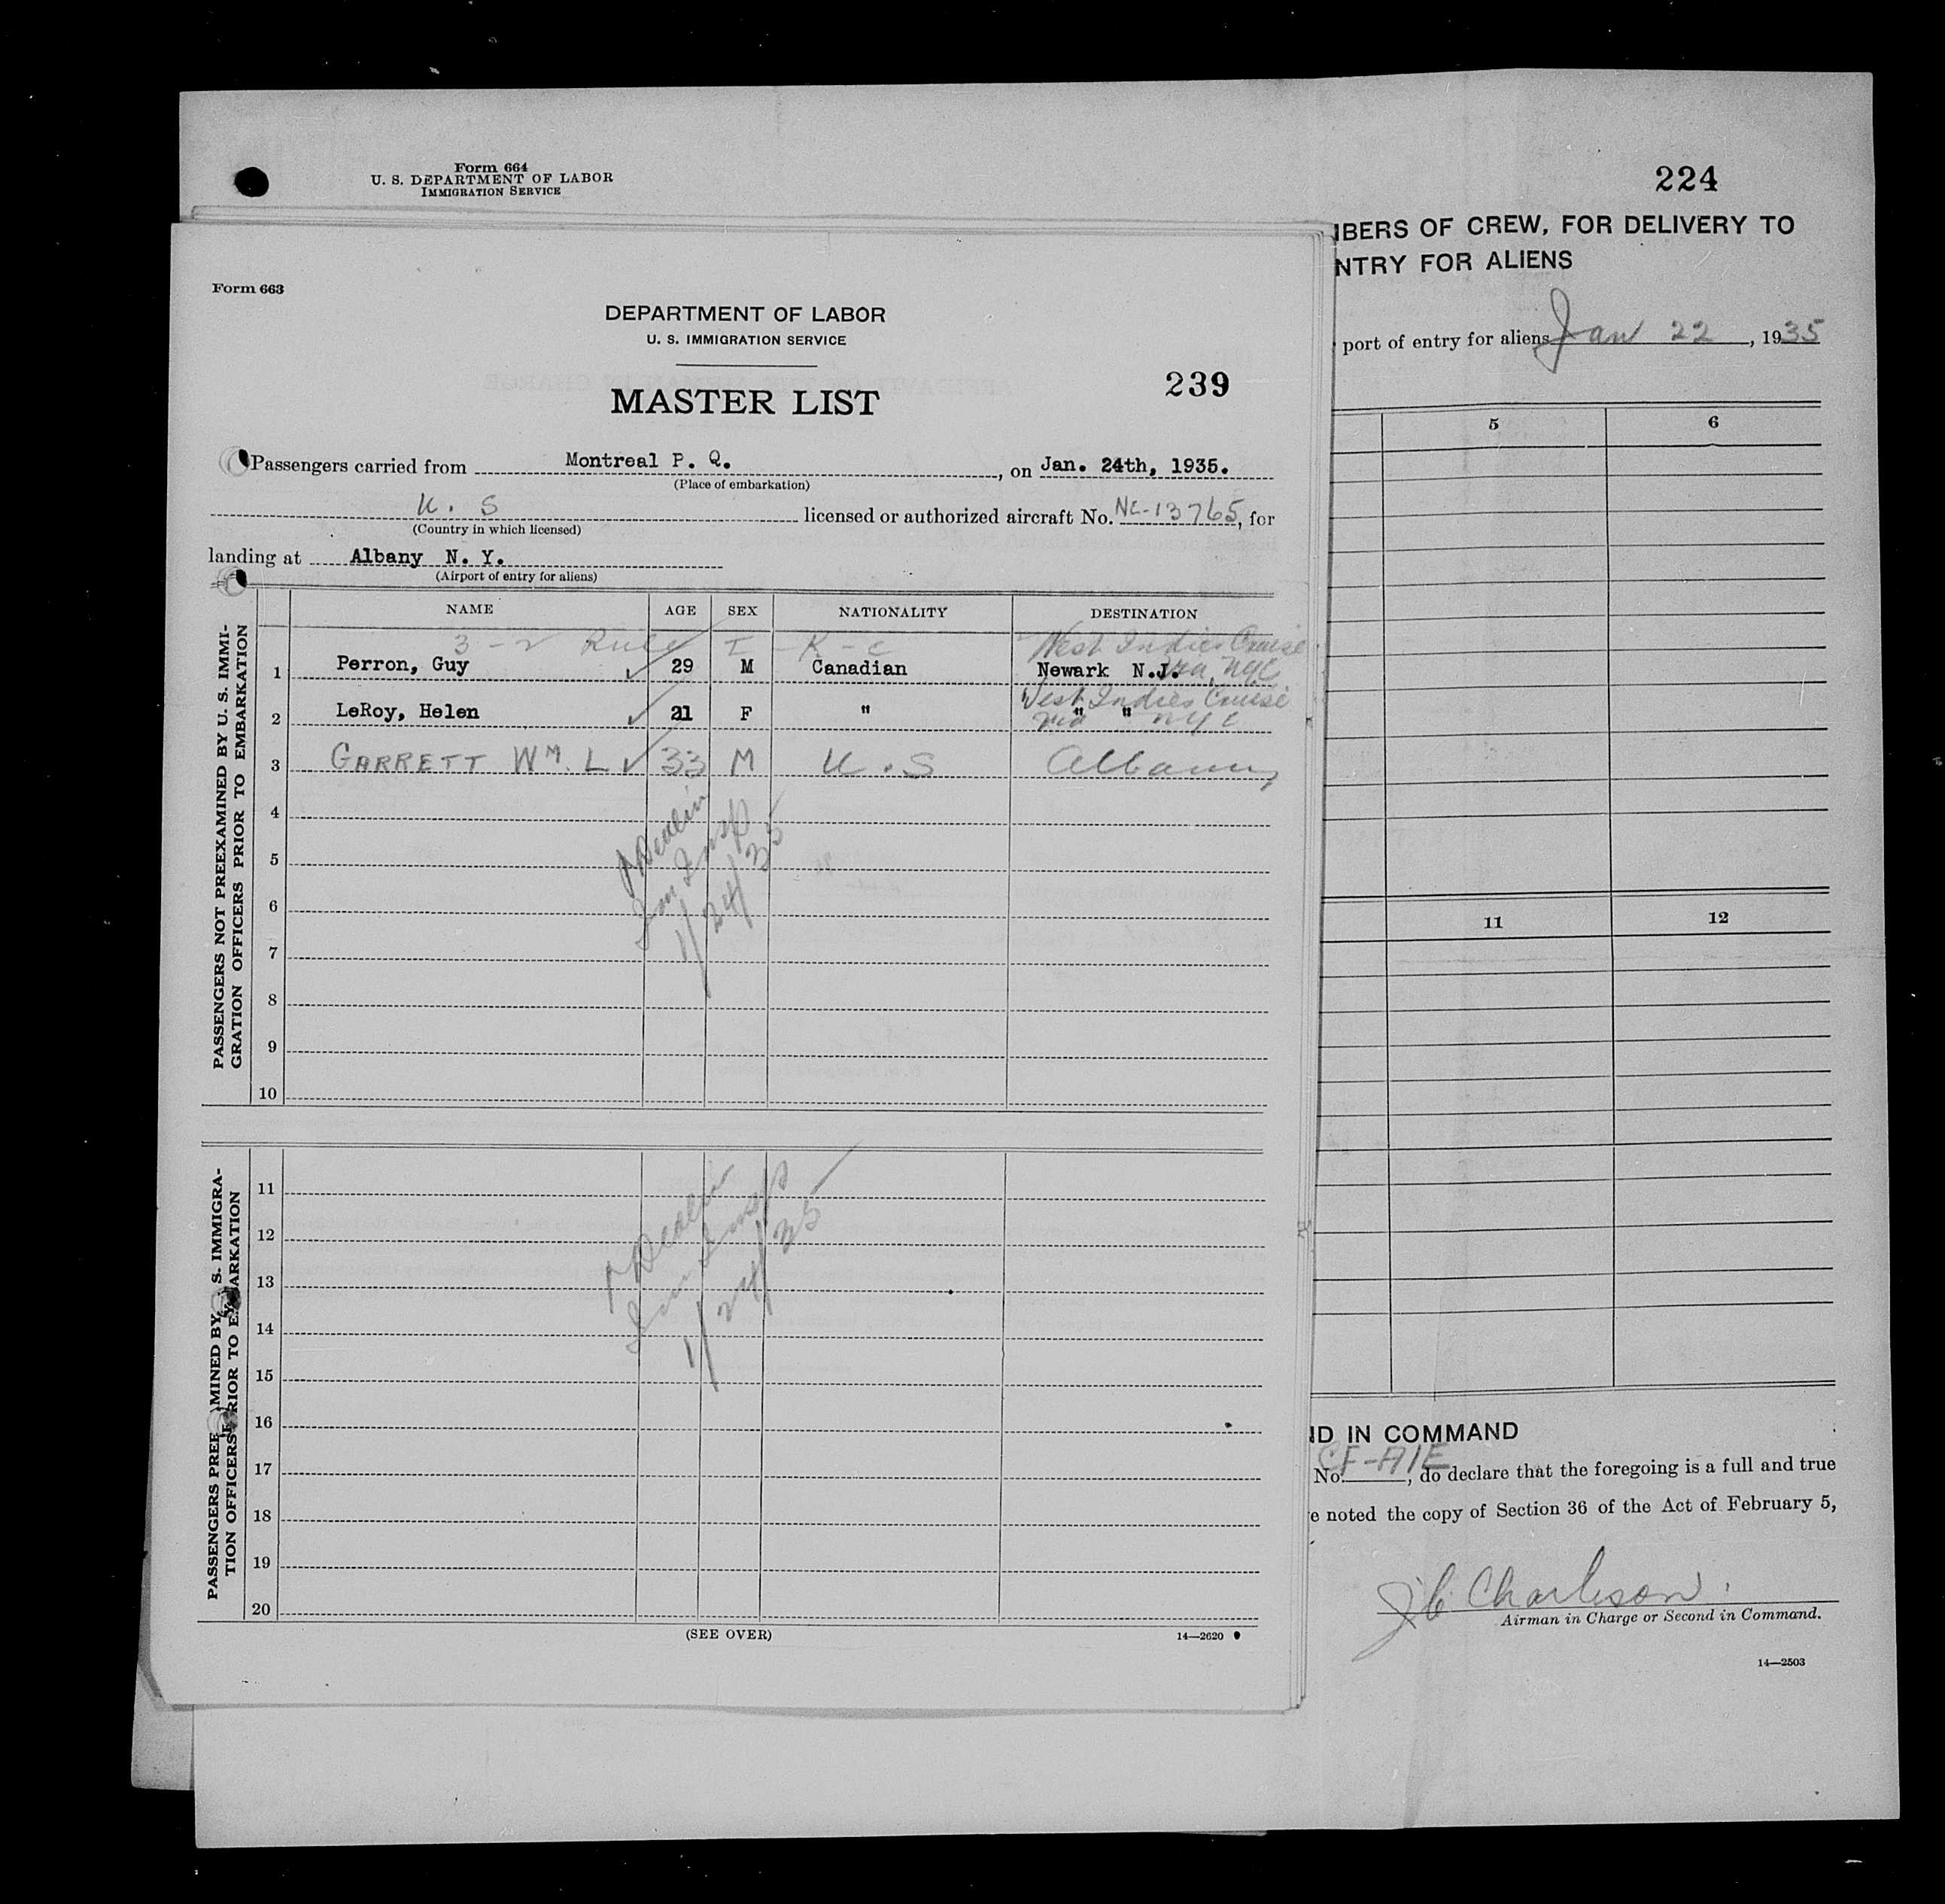 Form 664
U. S. DEPARTMENT OF LABOR
IMMIGRATION SERVICE
224
MBERS OF CREW, FOR DELIVERY TO
NTRY FOR ALIENS
port of entry for aliens Jan 22, 1935
5 6
11 12
ND IN COMMAND
No. CF-AIE, do declare that the foregoing is a full and true
e noted the copy of Section 36 of the Act of February 5,
Airman in Charge or Second in Command.
14—2503
Form 663
DEPARTMENT OF LABOR
U. S. IMMIGRATION SERVICE
239
MASTER LIST
Passengers carried from Montreal P. Q., on Jan. 24th, 1935.
(Place of embarkation)
U. S licensed or authorized aircraft No. NC-13765, for
(Country in which licensed)
landing at Albany N. Y.
(Airport of entry for aliens)
NAME AGE SEX NATIONALITY DESTINATION
PASSENGERS NOT PREEXAMINED BY U. S. IMMI-
GRATION OFFICERS PRIOR TO EMBARKATION
3-2 Rule I-K-C West Indies Cruise
1 Perron, Guy 29 M Canadian Newark N.J. via NYC
West Indies Cruise
2 LeRoy, Helen 21 F " " " via NYC
3 GARRETT WM. L 33 M U.S Albany
4
5
6
7
8
9
10
Imm Insp
1/24/35
PASSENGERS PREE MINED BY S. IMMIGRA-
TION OFFICERS PRIOR TO E ARKATION
11
12
13
14
15
16
17
18
19
20
Imm Insp
1/24/35
(SEE OVER)
14—2620